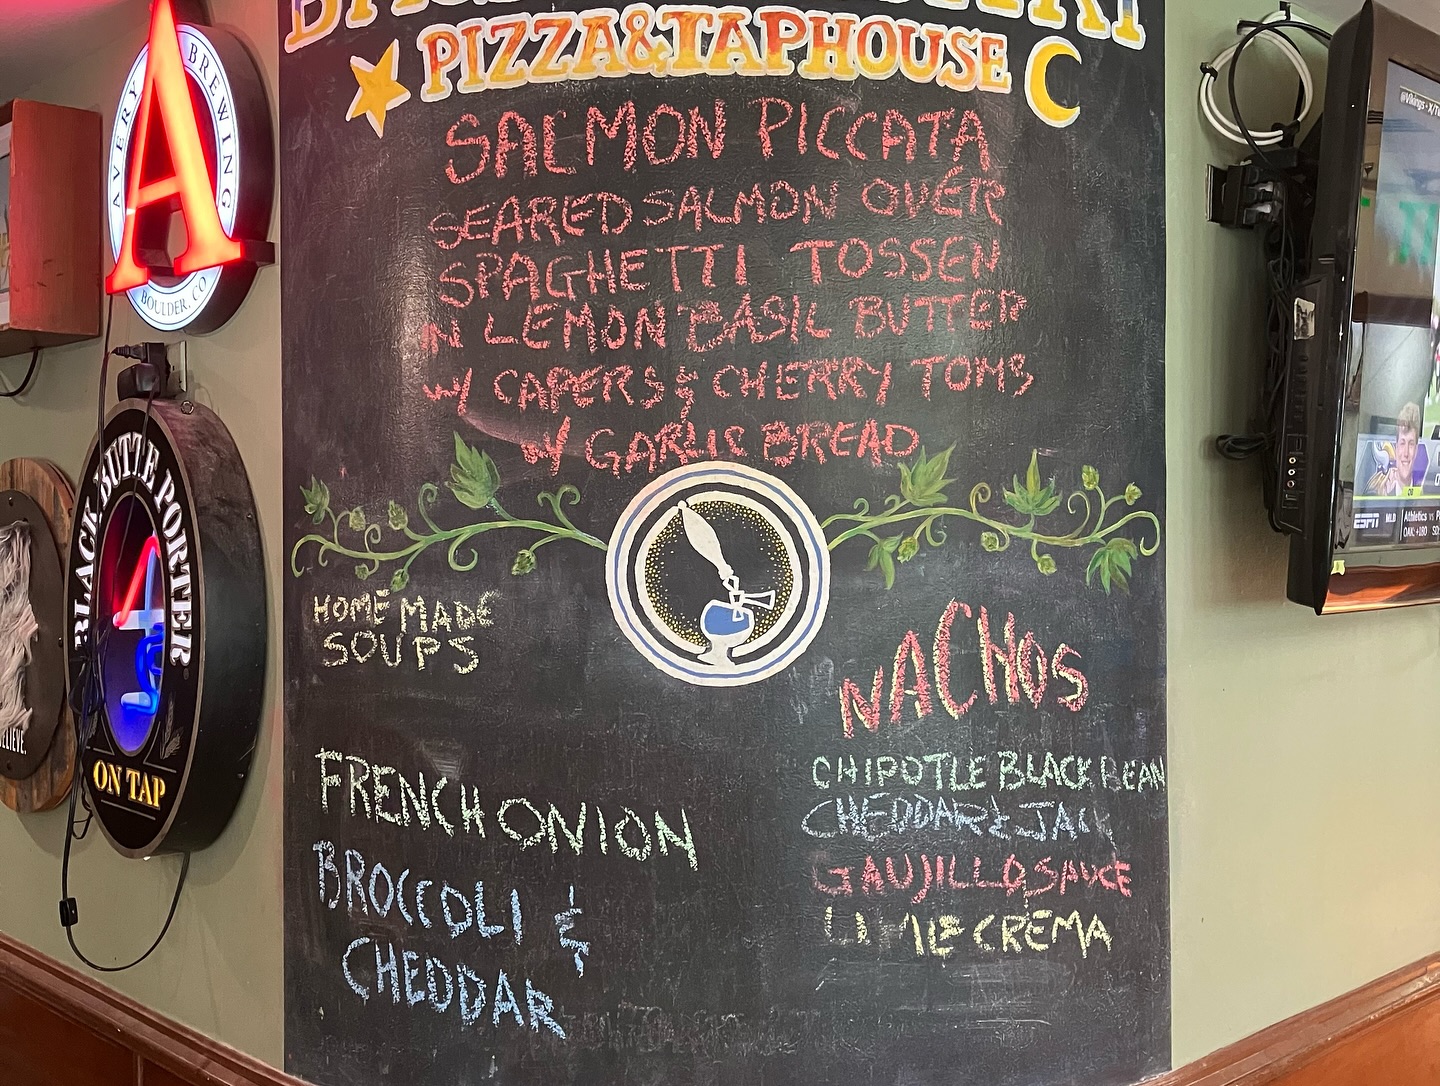 PIZZA&TAPHOUSE
SALMON PICCATA
SEARED SALMON OVER
SPAGHETTI TOSSEN
N LEMON BASIL BUTTER
W/ CAPERS & CHERRY TOMS
W/ GARLIC BREAD
HOMEMADE
SOUPS
FRENCH ONION
BROCCOLI &
CHEDDAR
NACHOS
CHIPOTLE BLACK BEAN
CHEDDAR & JACK
GAUJILLO SAUCE
LIME CREMA
AVERY BREWING
A
BOULDER, CO
BLACK BUTTE PORTER
ON TAP
ELIEVE.
@Vikings • X/Tw
ESPN
MLB
Athletics vs P
OAK: +180 SD: